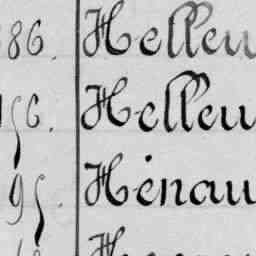 86. Helleu
56. Helleu
95. Hénau